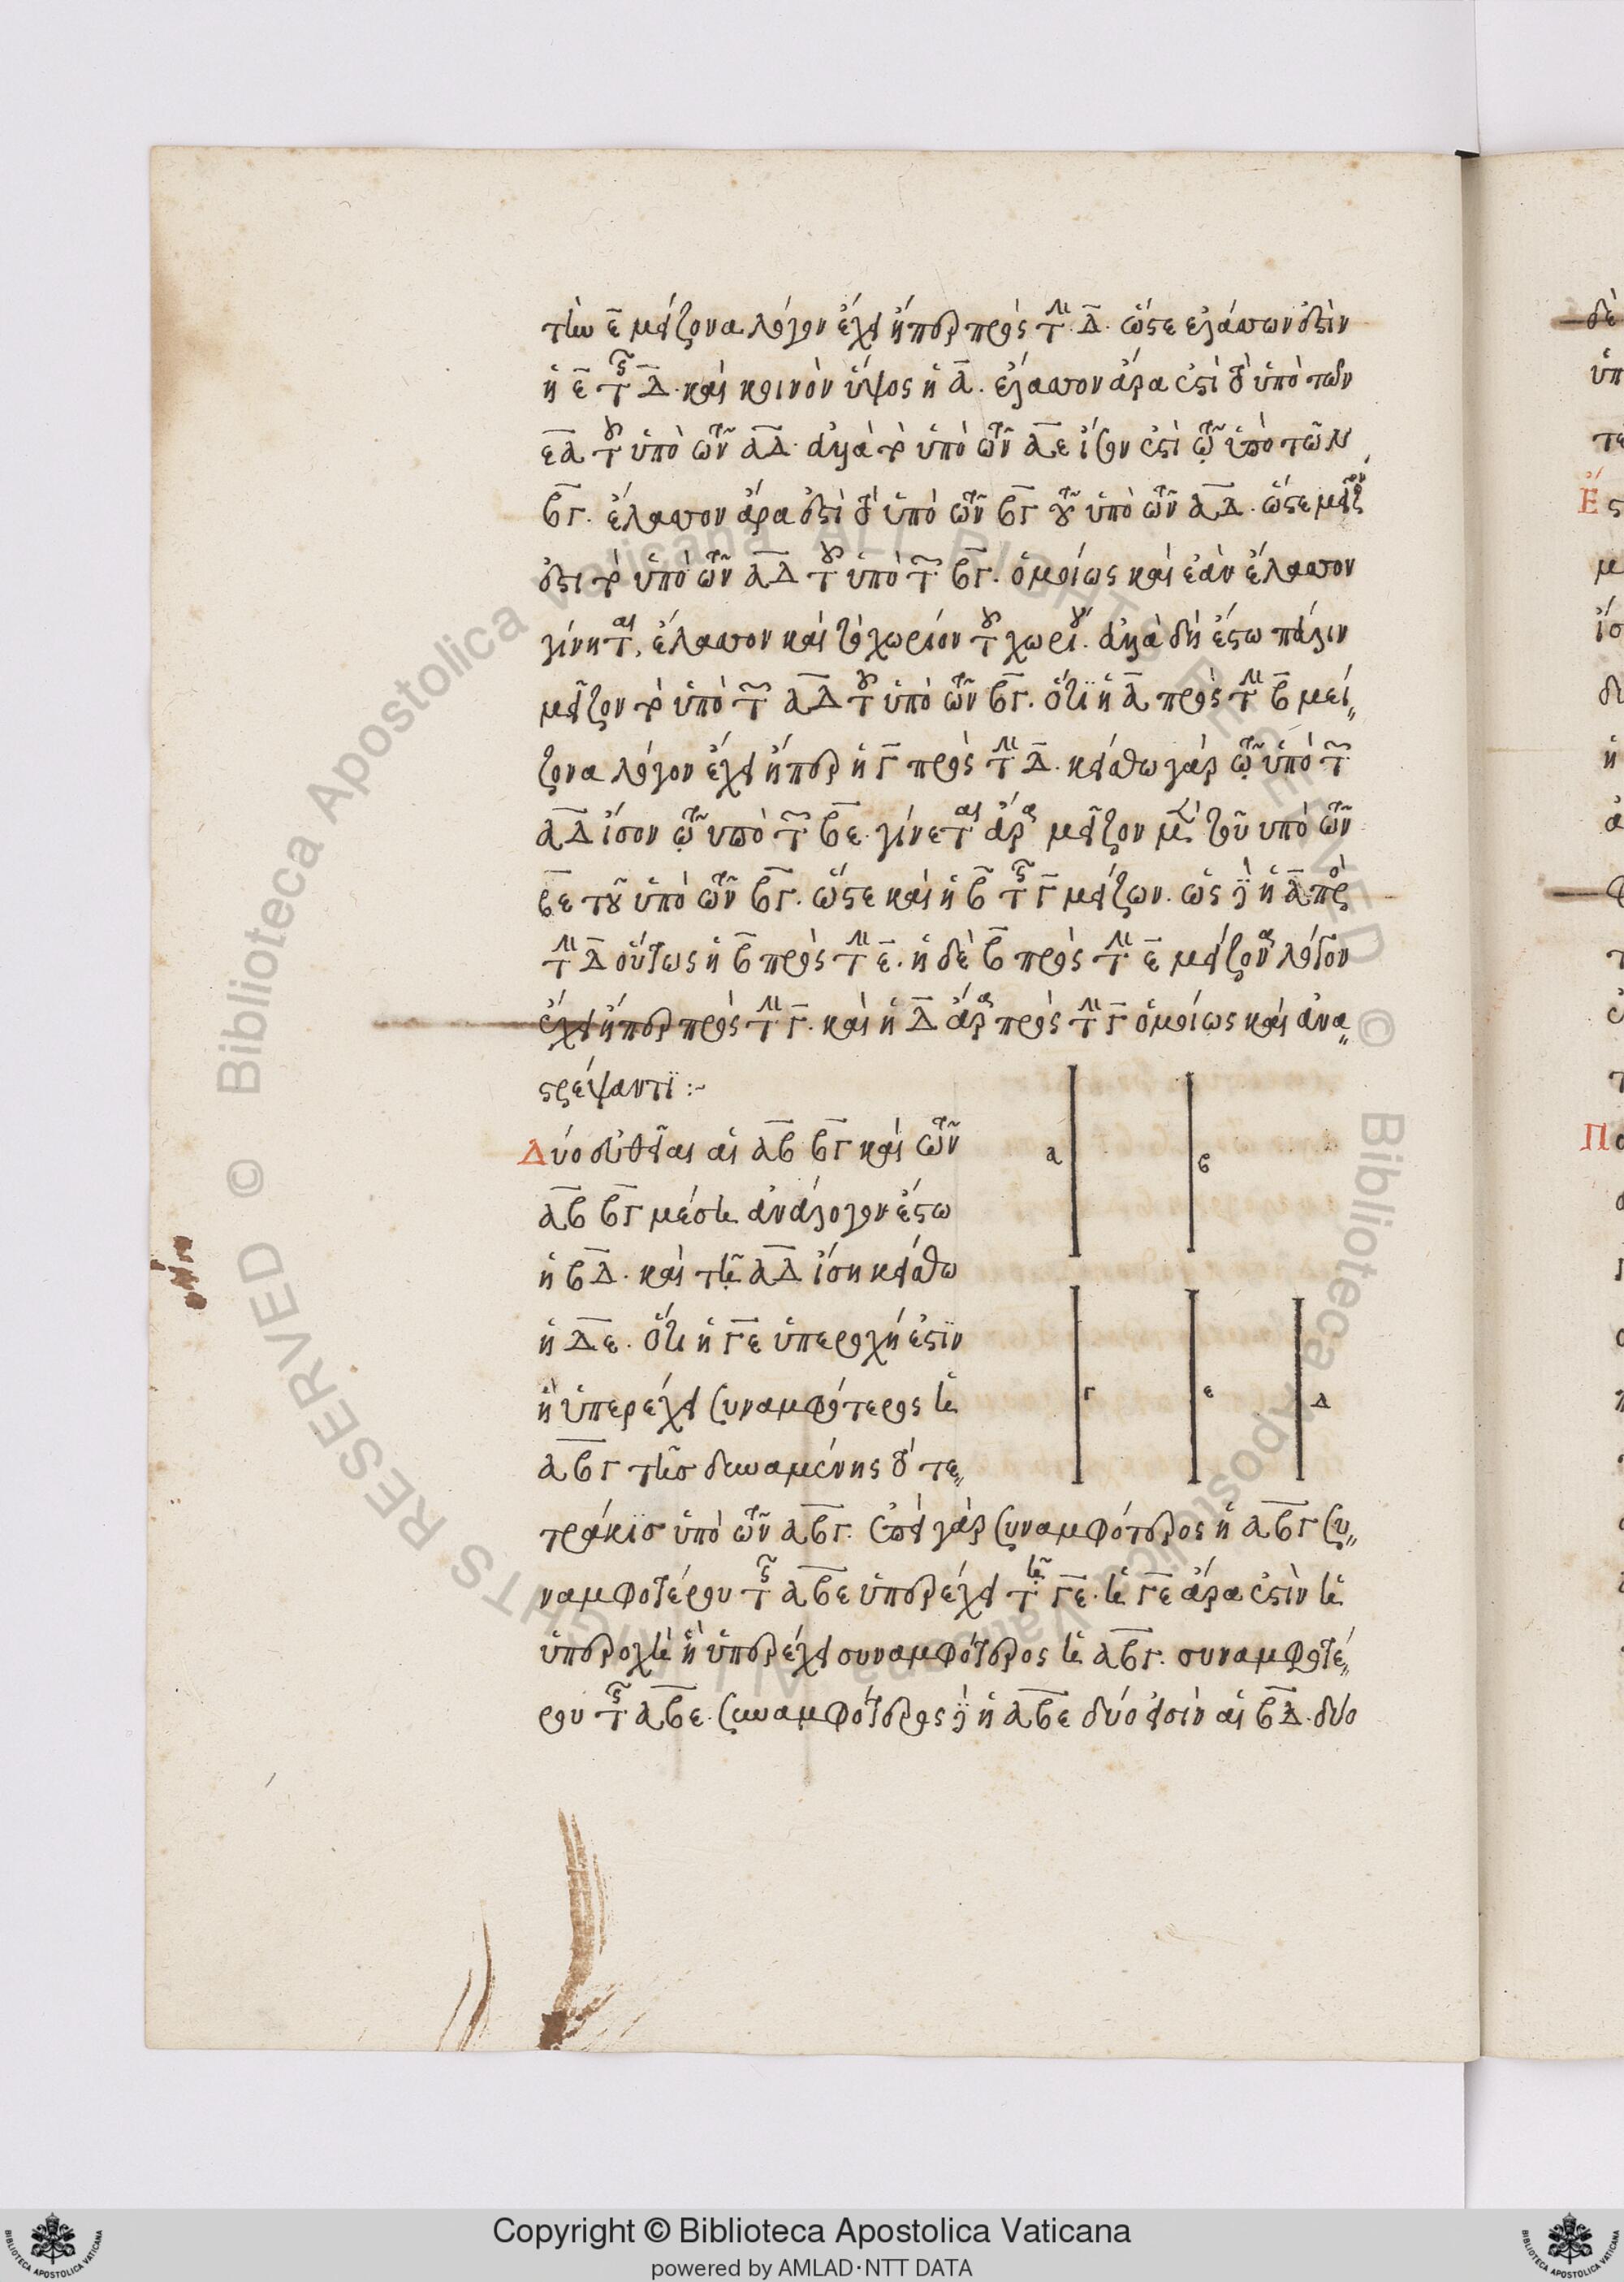 τὴν ε̅ μείζονα λόγον ἔχει ἤπερ πρὸς τὴν Δ̅. ὥστε ἐλάττων ἐστὶν
ἡ ε̅ τῆς Δ̅. καὶ κοινὸν ὕψος ἡ α̅. ἔλαττον ἄρα ἐστὶ τὸ ὑπὸ τῶν
εα τοῦ ὑπὸ τῶν αΔ. ἀλλὰ τὸ ὑπὸ τῶν αε ἴσον ἐστὶ τῷ ὑπὸ τῶν
βγ. ἔλαττον ἄρα ἐστὶ τὸ ὑπὸ τῶν βγ τοῦ ὑπὸ τῶν αΔ. ὥστε μεῖζον
ἐστι τὸ ὑπὸ τῶν αΔ τοῦ ὑπὸ τῶν βγ. ὁμοίως καὶ ἐὰν ἔλαττον
γίνηται, ἔλαττον καὶ τὸ χωρίον τοῦ χωρίου. ἀλλὰ δὴ ἔστω πάλιν
μεῖζον τὸ ὑπὸ τῶν αΔ τοῦ ὑπὸ τῶν βγ. ὅτι ἡ α̅ πρὸς τὴν β̅ μεί„
ζονα λόγον ἔχει ἤπερ ἡ γ̅ πρὸς τὴν Δ̅. κείσθω γὰρ τῷ ὑπὸ τῶν
αΔ ἴσον τῷ ὑπὸ τῶν βε. γίνεται ἄρα μεῖζον καὶ τοῦ ὑπὸ τῶν
βε τοῦ ὑπὸ τῶν βγ. ὥστε καὶ ἡ β̅ τῆς γ̅ μείζων. ὡς δὲ ἡ α̅ πρὸς
τὴν Δ̅ οὕτως ἡ β̅ πρὸς τὴν ε̅. ἡ δὲ β̅ πρὸς τὴν ε̅ μείζονα λόγον
ἔχει ἤπερ πρὸς τὴν γ̅. καὶ ἡ Δ̅ ἄρα πρὸς τὴν γ̅ ὁμοίως καὶ ἀνα„
στρέψαντι :~
Δύο εὐθεῖαι αἱ αβ βγ καὶ τῶν
αβ βγ μέση ἀνάλογον ἔστω
ἡ βΔ. καὶ τῇ αΔ ἴση κείσθω
ἡ Δε. ὅτι ἡ γε ὑπεροχή ἐστιν
ἣ ὑπερέχει συναμφότερος ἡ
αβγ τῆς δυναμένης τὸ τε„
τράκις ὑπὸ τῶν αβγ. ἐπεὶ γὰρ συναμφότερος ἡ αβγ συ„
ναμφοτέρου τῆς αβε ὑπερέχει τῇ γε. ἡ γε ἄρα ἐστὶν ἡ
ὑπεροχὴ ἣ ὑπερέχει συναμφότερος ἡ αβγ. συναμφοτέ„
ρου τῆς αβε. συναμφότερος δὲ ἡ αβε δύο εἰσὶν αἱ βΔ. δύο
α
β
γ
ε
Δ
δὲ
Ἐς
Copyright © Biblioteca Apostolica Vaticana
powered by AMLAD·NTT DATA